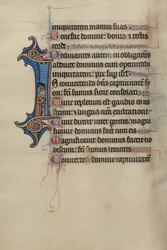 iniquitatem manus suas
Benefac domine bonis et rectis
corde
Declinantes autem in obligationes
adducet dominus cum operantibus
iniquitatem pax super isrl
In convertendo dominus captivitatem syon
facti sumus sicut consolati
Tunc repletum est gaudio os nostrum
et lingua nostra exultatione
Tunc dicent inter gentes magni
ficavit dominus facere cum eis
Magnificavit dominus facere nobiscum
facti sumus letantes
Converte domine captivitatem